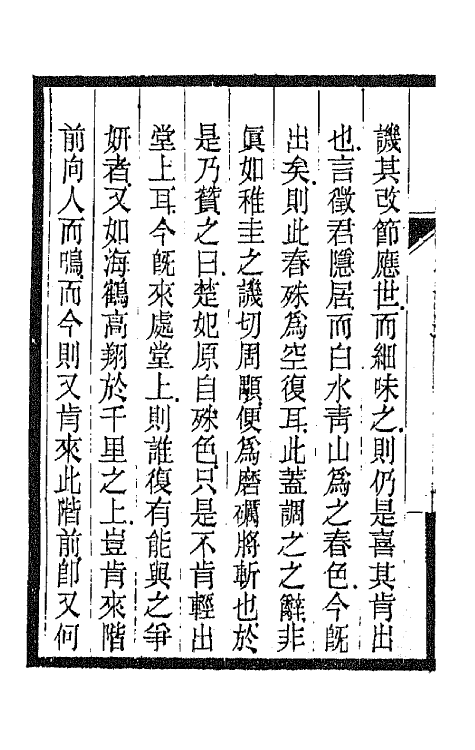 譏其改節應世而細味之則仍是喜其肯出
也言徵君隱居而白水靑山爲之春色今旣
出矣則此春殊爲空復耳此蓋調之之辭非
眞如稚圭之譏切周顒便爲磨礪將斬也於
是乃贊之曰楚妃原自殊色只是不肯輕出
堂上耳今旣來處堂上則誰復有能與之爭
妍者又如海鶴高翔於千里之上豈肯來階
前向人而鳴而今則又肯來此階前卽又何